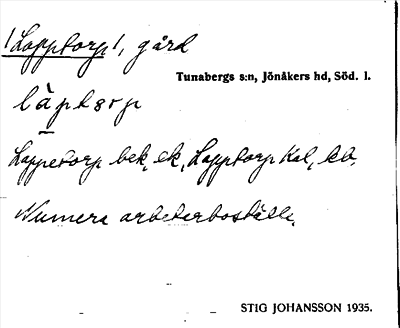 /Lopptorp/, gård
Tunabergs s:n, Jönåkers hd, Söd. l.
làptɔrp
Loppetorp bek, ek, Lopptorp Kal, kb.
Numera arbetarboställe.
STIG JOHANSSON 1935.